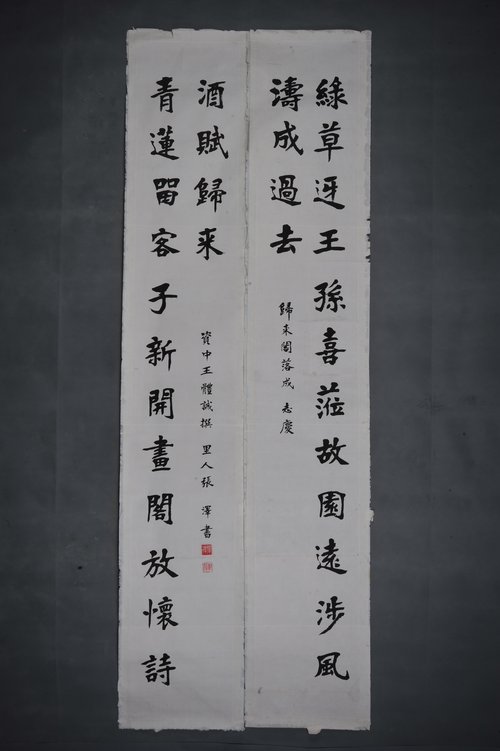 綠草迓王孫喜蒞故園遠涉風
濤成過去
歸來閣落成 志慶
青蓮留客子新開畫閣放懷詩
酒賦歸來
資中王體誠撰 里人張澤書